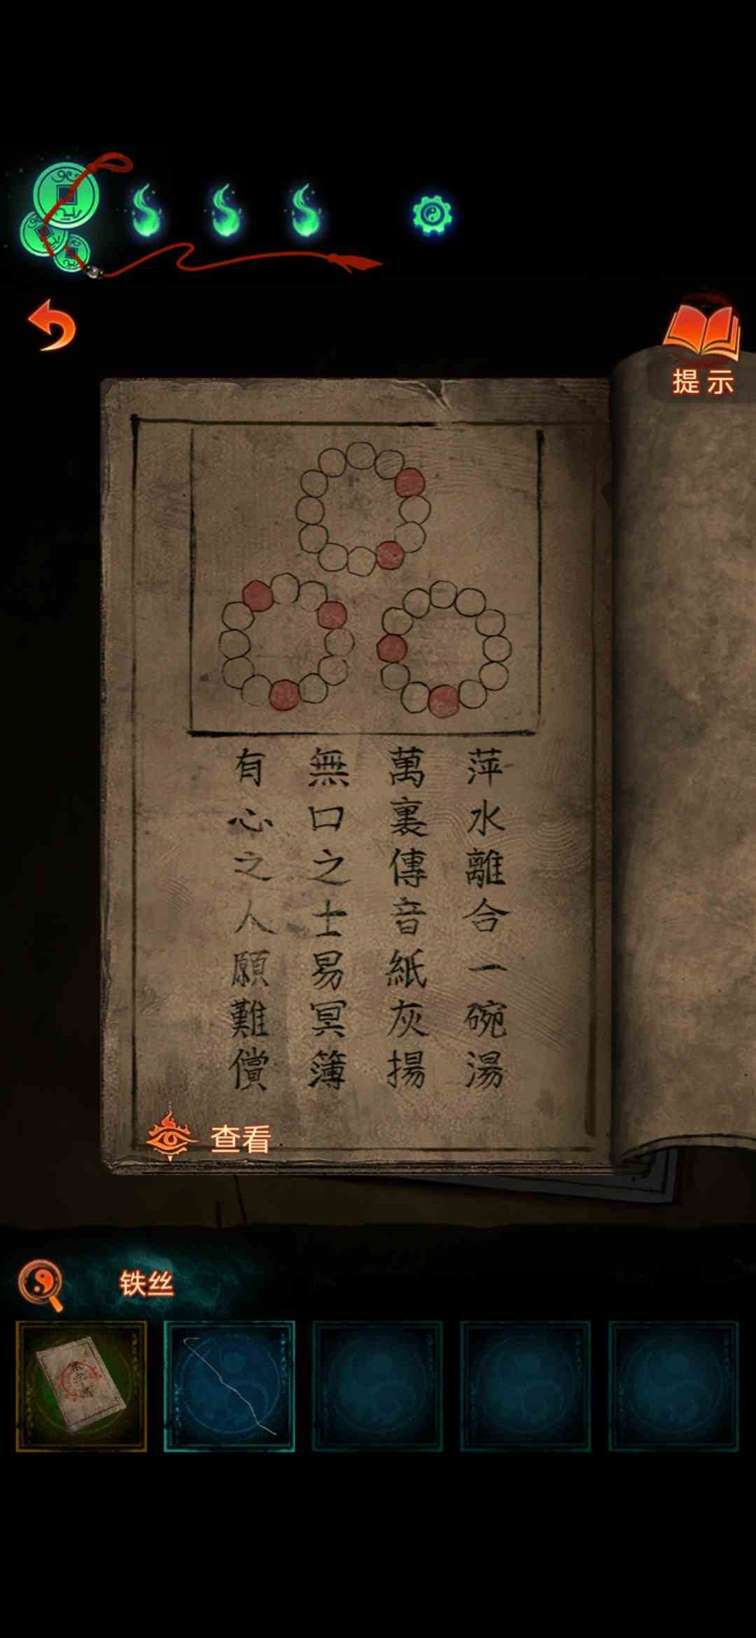 提示
萍水離合一碗湯
萬裏傳音紙灰揚
無口之士易冥簿
有心之人願難償
查看
铁丝